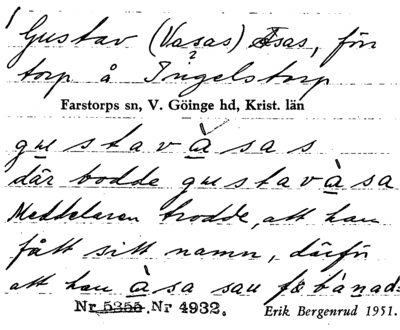 Gustav (Vasas) Åsas, förr
torp å Ingelstorp
Farstorps sn, V. Göinge hd, Krist. län
gustavàsas
där bodde gustavàsa
Meddelaren trodde, att han
fått sitt namn, därför
att han àsa sau
Nr 5355. Nr 4932. Erik Bergenrud 1951.